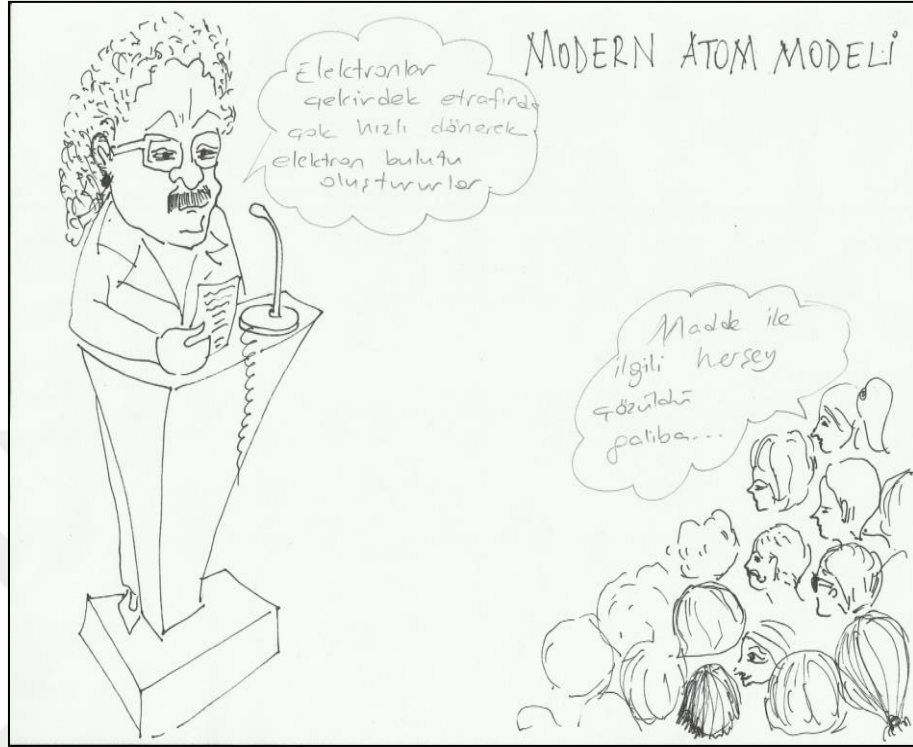 MODERN ATOM MODELİ
Elektronlar
çekirdek etrafında
çok hızlı dönerek
elektron bulutu
oluştururlar.
Madde ile
ilgili herşey
çözüldü
galiba...